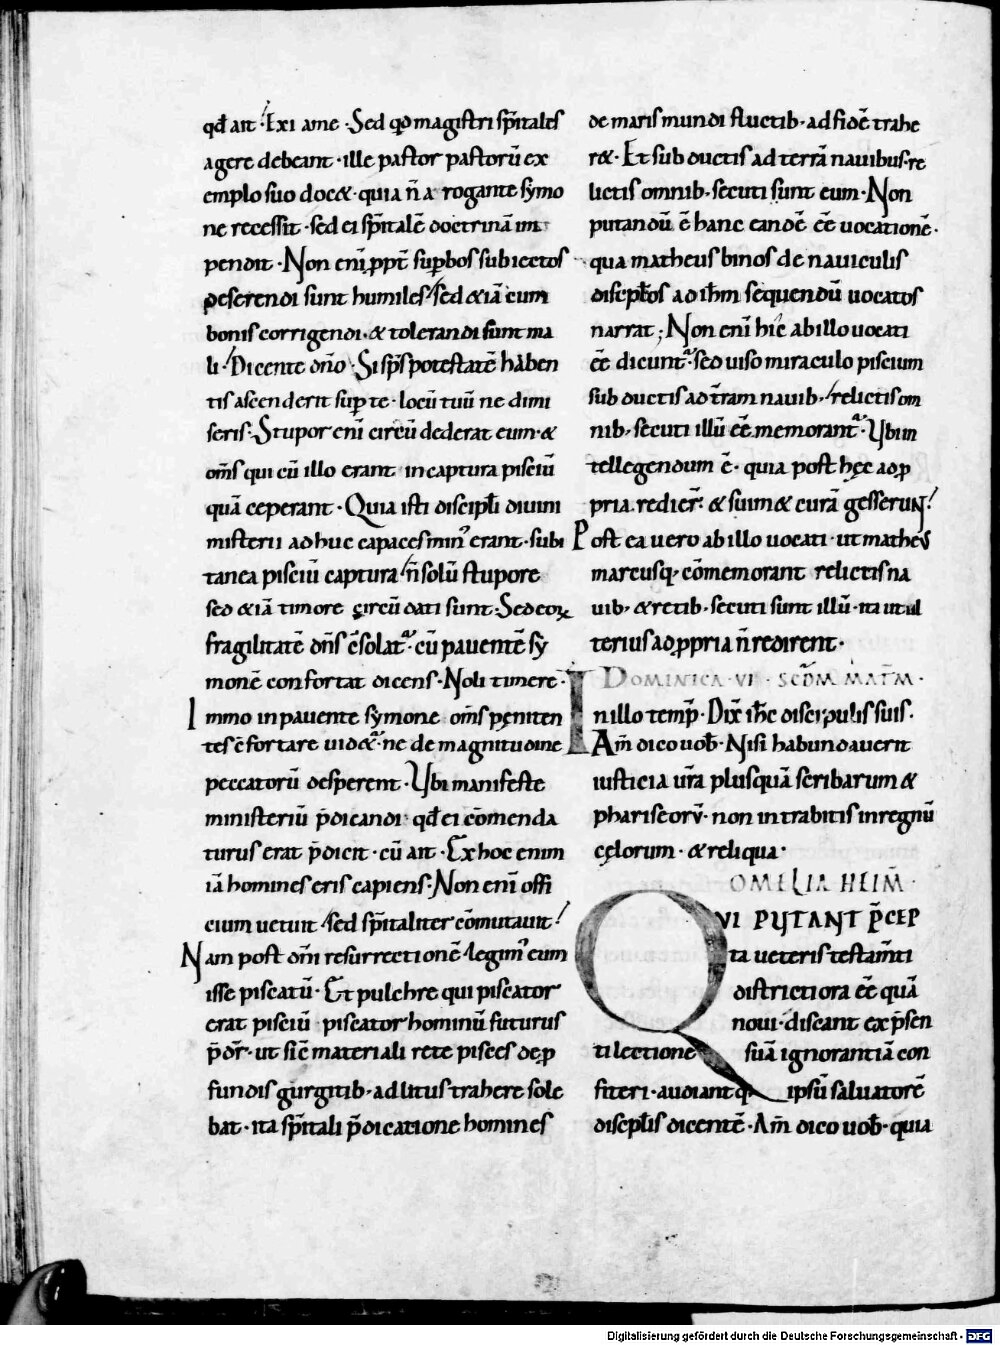 qđ ait · Exi a me · Sed qđ magistri sp̄itales
agere debeant · ille pastor pastorū ex
emplo suo docet · quia n̄ a rogante symo
ne recessit · sed ei sp̄italē doctrinā im
pendit · Non eni̅ ꝓpt̄ suꝑbos subiectos
deserendi sunt humiles · sed &iā cum
bonis corrigendi · & tolerandi sunt ma
li · Dicente dn̄o · Si sp̄s potestatē haben
tis ascenderit suꝑ te · locū tuū ne dimi
seris · Stupor eni̅ circū dederat eum · &
om̄s qui cū illo erant in captura pisciū
quā ceperant · Quia isti discipl̄i diuini
misterii adhuc capaces min᾽ erant · subi
tanea pisciū captura n̄ solū stupore
sed &iā timore circū dati sunt · Sed eoꝝ
fragilitatē dn̄s c̄solat᾽ · cū pauentē sy
monē confortat dicens · Noli timere ·
Immo in pauente symone om̄s pęniten
tes c̄fortare uidet᾽ · ne de magnitudine
peccatorū desperent · Ubi manifeste
ministeriū p̄dicandi · qđ ei cōmenda
turus erat p̄dicit · cū ait · Ex hoc enim
iā homines eris capiens · Non eni̅ offi
cium uetuit · sed sp̄italiter cōmutauit ·
Nam post dn̄i resurrectionē legim᾽ eum
isse piscatū · Et pulchre qui piscator
erat pisciū piscator hominū futurus
p̄dr̄ · ut sic̄ materiali rete pisces de ꝓ
fundis gurgitib · ad litus trahere sole
bat · ita sp̄itali p̄dicatione homines
de maris mundi fluctib · ad fidē trahe
r& · Et sub ductis ad terrā nauibus · re
lictis omnib · secuti sunt eum · Non
putandū ē hanc eandē ēē uocationē ·
qua matheus binos de nauiculis
discipl̄os ad ih̄m sequendū uocatos
narrat ; Non eni̅ hic ab illo uocati
ēē dicunt᾽ · sed uiso miraculo piscium
sub ductis ad t̄ram nauib · relictis om
nib · secuti illū ēē memorant᾽ · Ubi in
tellegendum ē · quia post hęc ad ꝓ
pria redier̄ · & suim& curā gesserunt ·
Post ea uero ab illo uocati · ut matheus
marcusq · cōmemorant relictis na
uib · & retib · secuti sunt illū · ita ut ul
terius ad ꝓpria n̄ redirent ·
DOMINICA · VI · SCDM MATHM ·
In illo temp̄ · Dix̄ ih̄c discipulis suis ·
Am̄ dico uob̄ · Nisi habundauerit
iusticia ur̄a plusquā scribarum &
phariseorū · non intrabitis in regnū
cęlorum · & reliqua ·
OMELIA HEIM̄ ·
QVI PUTANT P̄CEP
ta ueteris testam̄ti
districtiora ēē quā
noui · discant ex p̄sen
ti lectione suā ignorantiā con
fiteri · audiant q · ipsū saluatorē
discipl̄is dicentē · Am̄ dico uob̄ · quia
Digitalisierung gefördert durch die Deutsche Forschungsgemeinschaft - DFG